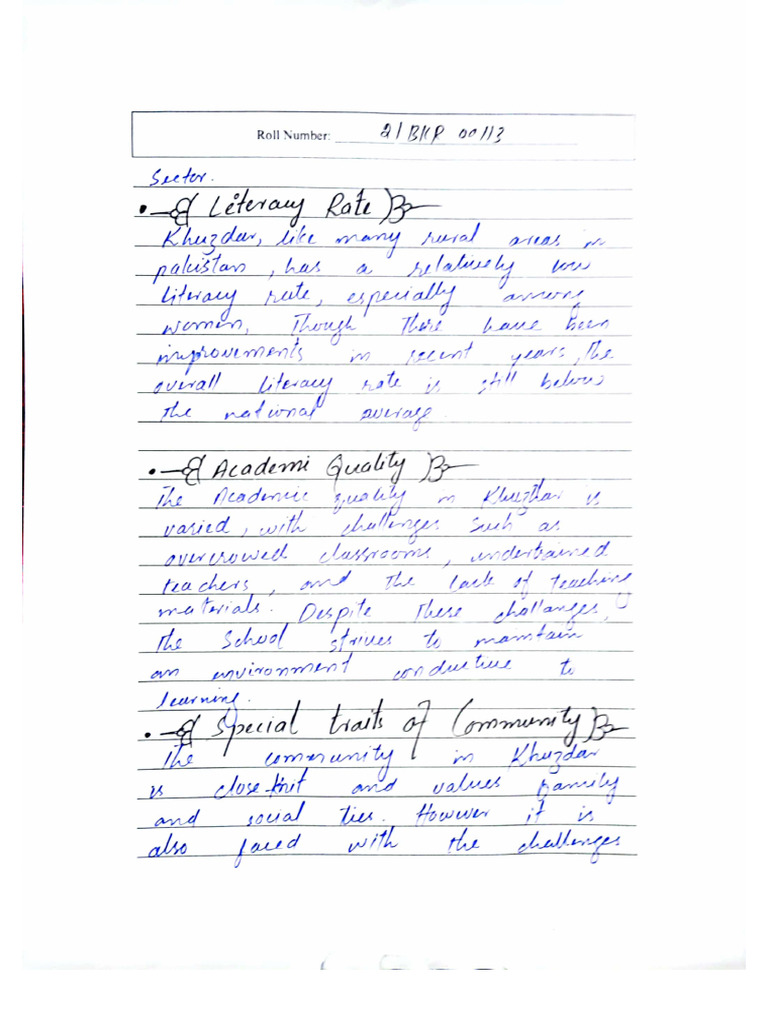 Roll Number: 21BKP 00113
Sector.
• Literacy Rate
Khuzdar, like many rural areas in
pakistan, has a relatively low
literacy rate, especially among
women, Though There have been
improvements in recent years, the
overall literacy rate is still below
the national average.
• Academi Quality
The Academic quality in Khuzthar is
varied, with challenges such as
overcrowed classrooms, undertrained
teachers, and the lack of teaching
materials. Despite these challanges,
the School strives to maintain
an environment conductive to
learning.
• Special traits of Community
The community in Khuzdar
is close-knit and values family
and social ties. However it is
also faced with the challenges